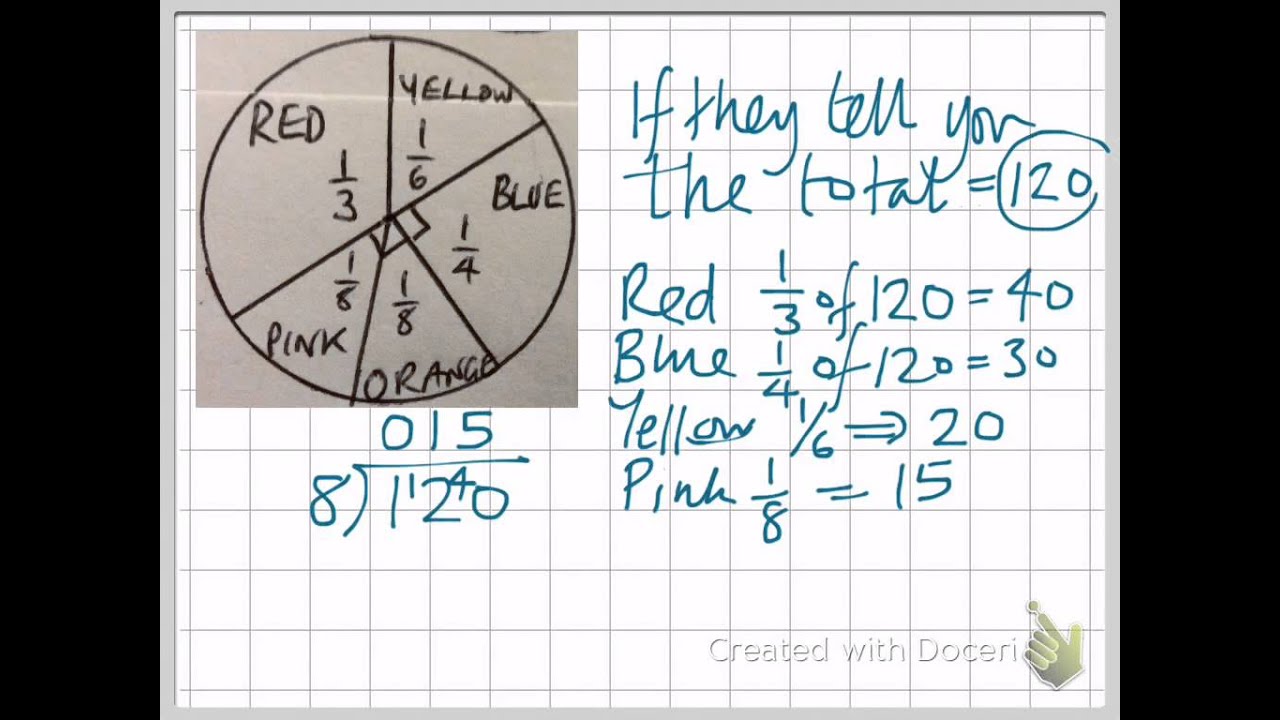 YELLOW
RED
1/6
1/3
BLUE
1/4
1/8
1/8
PINK
ORANGE
If they tell you
the total = 120
Red 1/3 of 120 = 40
Blue 1/4 of 120 = 30
Yellow 1/6 ⇒ 20
Pink 1/8 = 15
015
8)1¹2⁴0
Created with Doceri